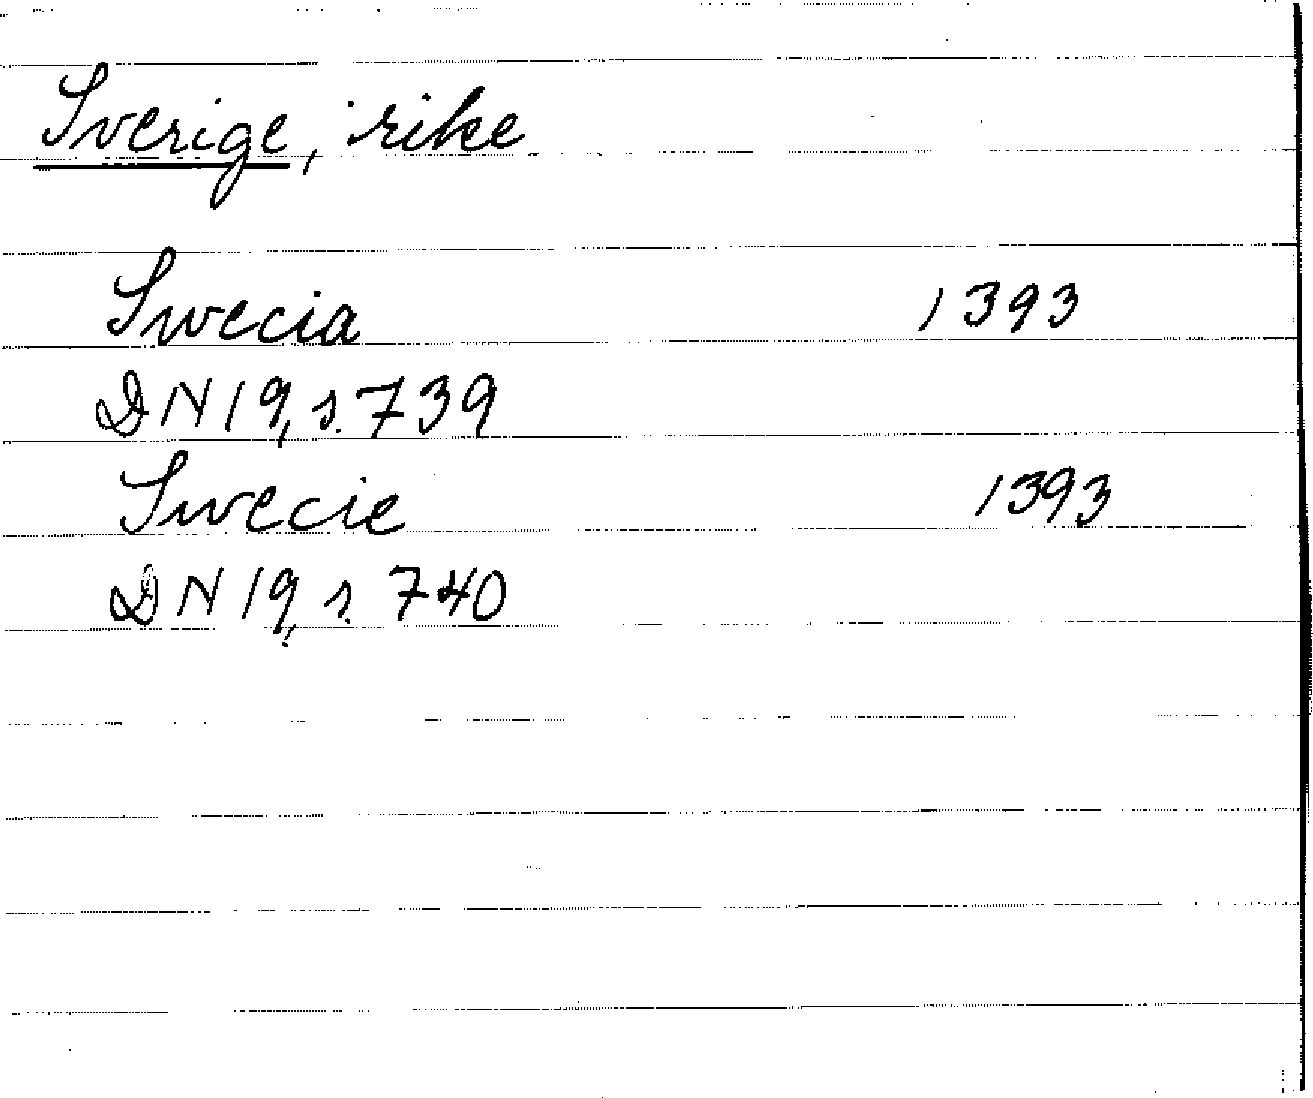 Sverige, rike
Swecia 1393
DN 19, s. 739
Swecie 1393
DN 19, s. 740